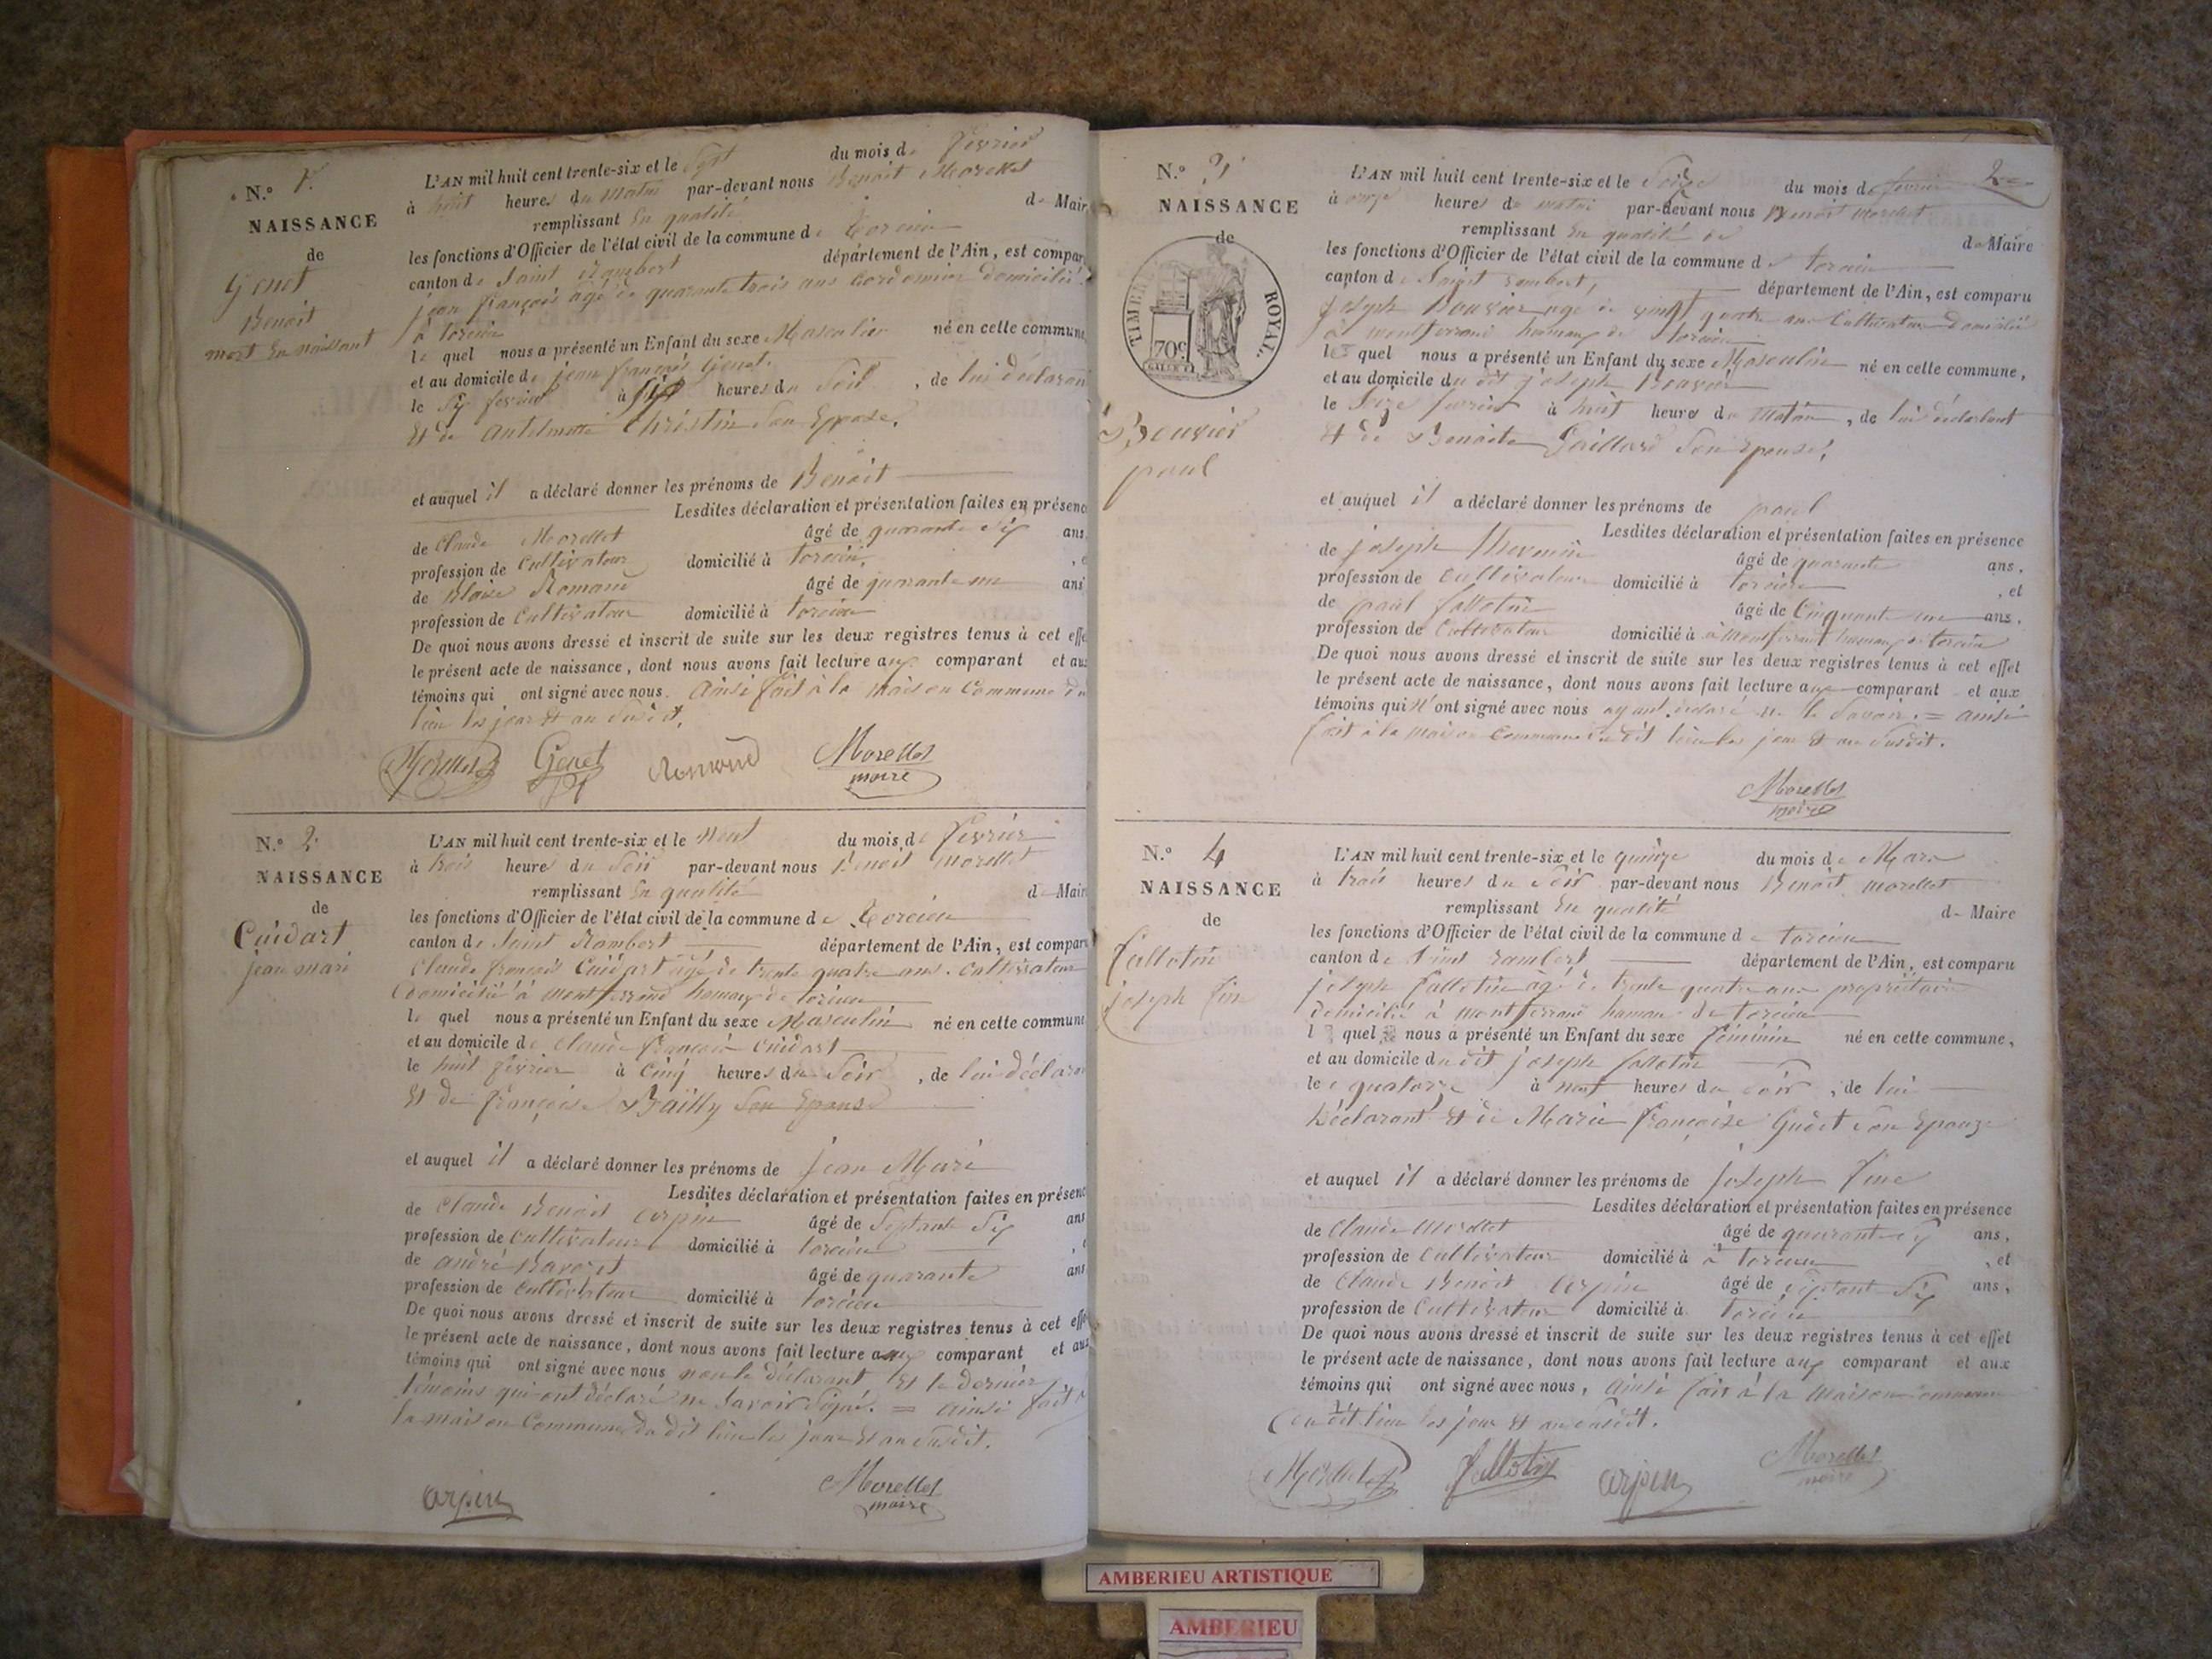 N.º 1.
NAISSANCE
de
Genet
Benoit
mort en naissant
L'AN mil huit cent trente-six et le Sept du mois de février
à huit heures du matin par-devant nous Benoit Morellet
remplissant En qualité de Mair
les fonctions d'Officier de l'état civil de la commune de Torcieu
canton de Saint Rambert département de l'Ain, est compar
jean françois âgé de quarante trois ans Cordonnier domicilié
à torcieu
le quel nous a présenté un Enfant du sexe Masculin né en cette commune
et au domicile de jean françois Genet.
le Six fevrier à heures du Soir, de lui déclarant
Et de Antelmette Christin Son Epouse.
et auquel il a déclaré donner les prénoms de Benoit
Lesdites déclaration et présentation faites en présenc
de Claude Morellet âgé de quarante six ans
profession de Cultivateur domicilié à torcieu,
de Blaise Romand âgé de quarante un ans
profession de Cultivateur domicilié à torcieu
De quoi nous avons dressé et inscrit de suite sur les deux registres tenus à cet effe
le présent acte de naissance, dont nous avons fait lecture aux comparant et aux
témoins qui ont signé avec nous. Ainsi fait à la maison Commune du
lieu les jour et an Susdit.
Morellet Genet Romand Morellet
maire
N.º 2.
NAISSANCE
de
Cuidart
jean mari
L'AN mil huit cent trente-six et le Neuf du mois de février
à trois heures du Soir par-devant nous Benoit Morellet
remplissant En qualité de Mair
les fonctions d'Officier de l'état civil de la commune de Torcieu
canton de Saint Rambert département de l'Ain, est comparu
Claude françois Cuidart âgé de trente quatre ans. Cultivateur
domicilié à montferrand hameau de torcieu
le quel nous a présenté un Enfant du sexe Masculin né en cette commune
et au domicile de Claude françois Cuidart
le huit février à Cinq heures du Soir, de lui déclarant
Et de françoise Bailly Son Epouse
et auquel il a déclaré donner les prénoms de Jean Mari
Lesdites déclaration et présentation faites en présenc
de Claude Benoit Arpin âgé de Septante Six ans
profession de Cultivateur domicilié à torcieu
de andré âgé de quarante ans
profession de Cultivateur domicilié à torcieu
De quoi nous avons dressé et inscrit de suite sur les deux registres tenus à cet effe
le présent acte de naissance, dont nous avons fait lecture aux comparant et aux
témoins qui ont signé avec nous non le déclarant Et le dernier
témoins qui ont déclaré ne Savoir Signé. = Ainsi fait à
la maison Commune du dit lieu les jour Et an Susdit.
arpin Morellet
maire
N.º 3
NAISSANCE
de
TIMBRE ROYAL.
70c
Bouvier
paul
2
L'AN mil huit cent trente-six et le Seize du mois de fevrier
à onze heures du matin par-devant nous Benoit Morellet
remplissant En qualité de de Maire
les fonctions d'Officier de l'état civil de la commune de torcieu
canton de Saint rambert, département de l'Ain, est comparu
Joseph Bouvier age de vingt quatre ans Cultivateur domicilié
à montferrand hameau de torcieu
le quel nous a présenté un Enfant du sexe Masculin né en cette commune,
et au domicile du dit joseph Bouvier
le Seize fevrier à huit heures du Matin, de lui déclarant
Et de Benoite Gaillard Son Epouse,
et auquel il a déclaré donner les prénoms de paul
Lesdites déclaration et présentation faites en présence
de joseph Thevenin âgé de quarante ans,
profession de Cultivateur domicilié à torcieu, et
de paul fallotin âgé de Cinquante un ans,
profession de Cultivateur domicilié à à Montferrand hameau de torcieu
De quoi nous avons dressé et inscrit de suite sur les deux registres tenus à cet effet
le présent acte de naissance, dont nous avons fait lecture aux comparant et aux
témoins qui n'ont signé avec nous ayant déclaré ne le Savoir. = ainsi
fait à la maison Commune du dit lieu les jour Et an Susdit.
Morellet
maire
N.º 4
NAISSANCE
de
fallotin
joseph fine
L'AN mil huit cent trente-six et le quinze du mois de Mars
à trois heures du Soir par-devant nous Benoit Morellet
remplissant En qualité de Maire
les fonctions d'Officier de l'état civil de la commune de torcieu
canton de Saint rambert département de l'Ain, est comparu
joseph fallotin âgé de trente quatre ans propriétaire
domicilié à Montferrand hameau de torcieu
l quel nous a présenté un Enfant du sexe féminin né en cette commune,
et au domicile du dit joseph fallotin
le quatorze à neuf heures du Soir, de lui
Déclarant Et de Marie françoise Son Epouze
et auquel il a déclaré donner les prénoms de joseph fine
Lesdites déclaration et présentation faites en présence
de Claude Morellet âgé de quarante six ans,
profession de Cultivateur domicilié à à torcieu, et
de Claude Benoit Arpin âgé de Septante Six ans,
profession de Cultivateur domicilié à torcieu
De quoi nous avons dressé et inscrit de suite sur les deux registres tenus à cet effet
le présent acte de naissance, dont nous avons fait lecture aux comparant et aux
témoins qui ont signé avec nous, ainsi fait à la Maison Commune
du dit lieu les jour Et an Susdit.
Morellet fallotin arpin Morellet
maire
AMBERIEU ARTISTIQUE
AMBERIEU